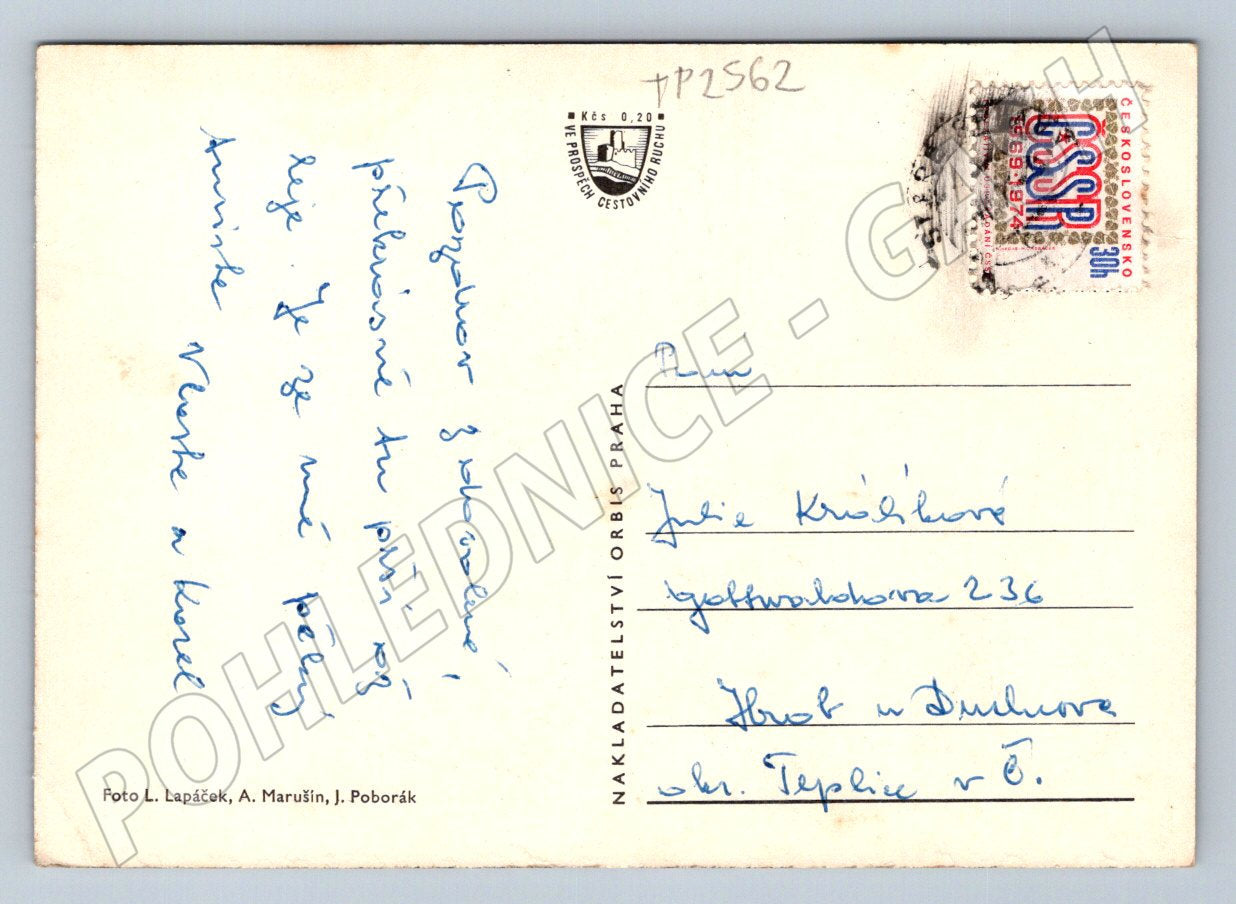 TP2562
Kčs 0,20
VE PROSPĚCH CESTOVNÍHO RUCHU
ČESKOSLOVENSKO
ČSSR
1969·1974
30h
Pozdrav z dovolené,
překrásné tu prší, až
leje. Je ze mě pěkný
turista Vlasta a Karel
NAKLADATELSTVÍ ORBIS PRAHA
Paní
Julie Králíková
Gottwaldova 236
Hrob u Duchcova
okr. Teplice v Č.
Foto L. Lapáček, A. Marušín, J. Poborák
POHLEDNICE - GALH